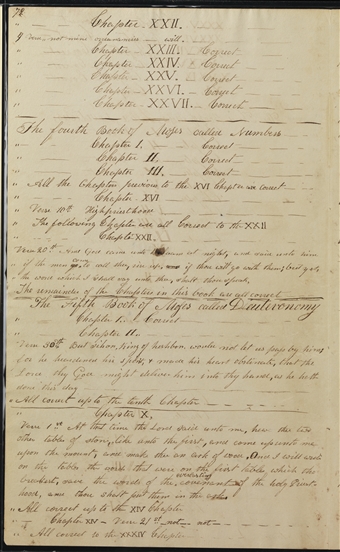 72
" Chapter XXII.
9 Verse, not mine ordinances — will.
" Chapter XXIII. — Correct
" Chapter XXIV — Correct
" Chapter — XXV. — Correct
" Chapter — XXVI. — Correct
" Chapter — XXVII — Correct
The fourth Book of Moses called Numbers
" Chapter I. — Correct
" Chapter II. — Correct
" Chapter III. Correct
" All the Chapters previous to the XVI Chapter are correct
" Chapter XVI
" Verse 10th High priesthood
" The following Chapters are all Correct to the XXII
" Chapter XXII.
Verse 20th And God came unto at night, and said unto him
if the men to call thee, rise up, if thou will go with them; but yet
the word which I shall say unto thee, shalt thou speak,
The remainder of the Chapters in this book are all correct
The Fifth Book of Moses called Deuteronomy
" Chapter I. — Correct
" Chapter II.
Verse 30th But Sihon, King of heshbon, would not let us pass by him;
for he hardened his spirit, & made his heart obstinate, that the
Lord thy God might deliver him into thy hand, as he hath
done this day
" All correct up to the tenth Chapter
" Chapter X.
Verse 1st At this time the Lord said unto me, hew thee two
other tables of stone, like unto the first, and come up unto me
upon the mount, and make thee an ark of wood. And I will write
on the tables the words that were on the first tables, which thou
breakest, save the words of the everlasting covenant of the holy Priest-
hood, and thou shalt put them in the
" All correct up to the XIV Chapter
" Chapter XIV — Verse 21st — not — not —
" All correct to the XXXIV Chapter